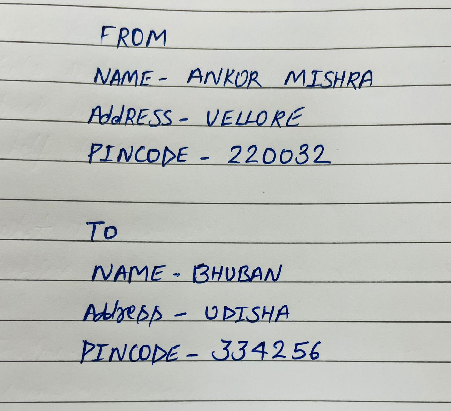 FROM
NAME - ANKUR MISHRA
AddRESS - VELLORE
PINCODE - 220032
TO
NAME - BHUBAN
Address - UDISHA
PINCODE - 334256